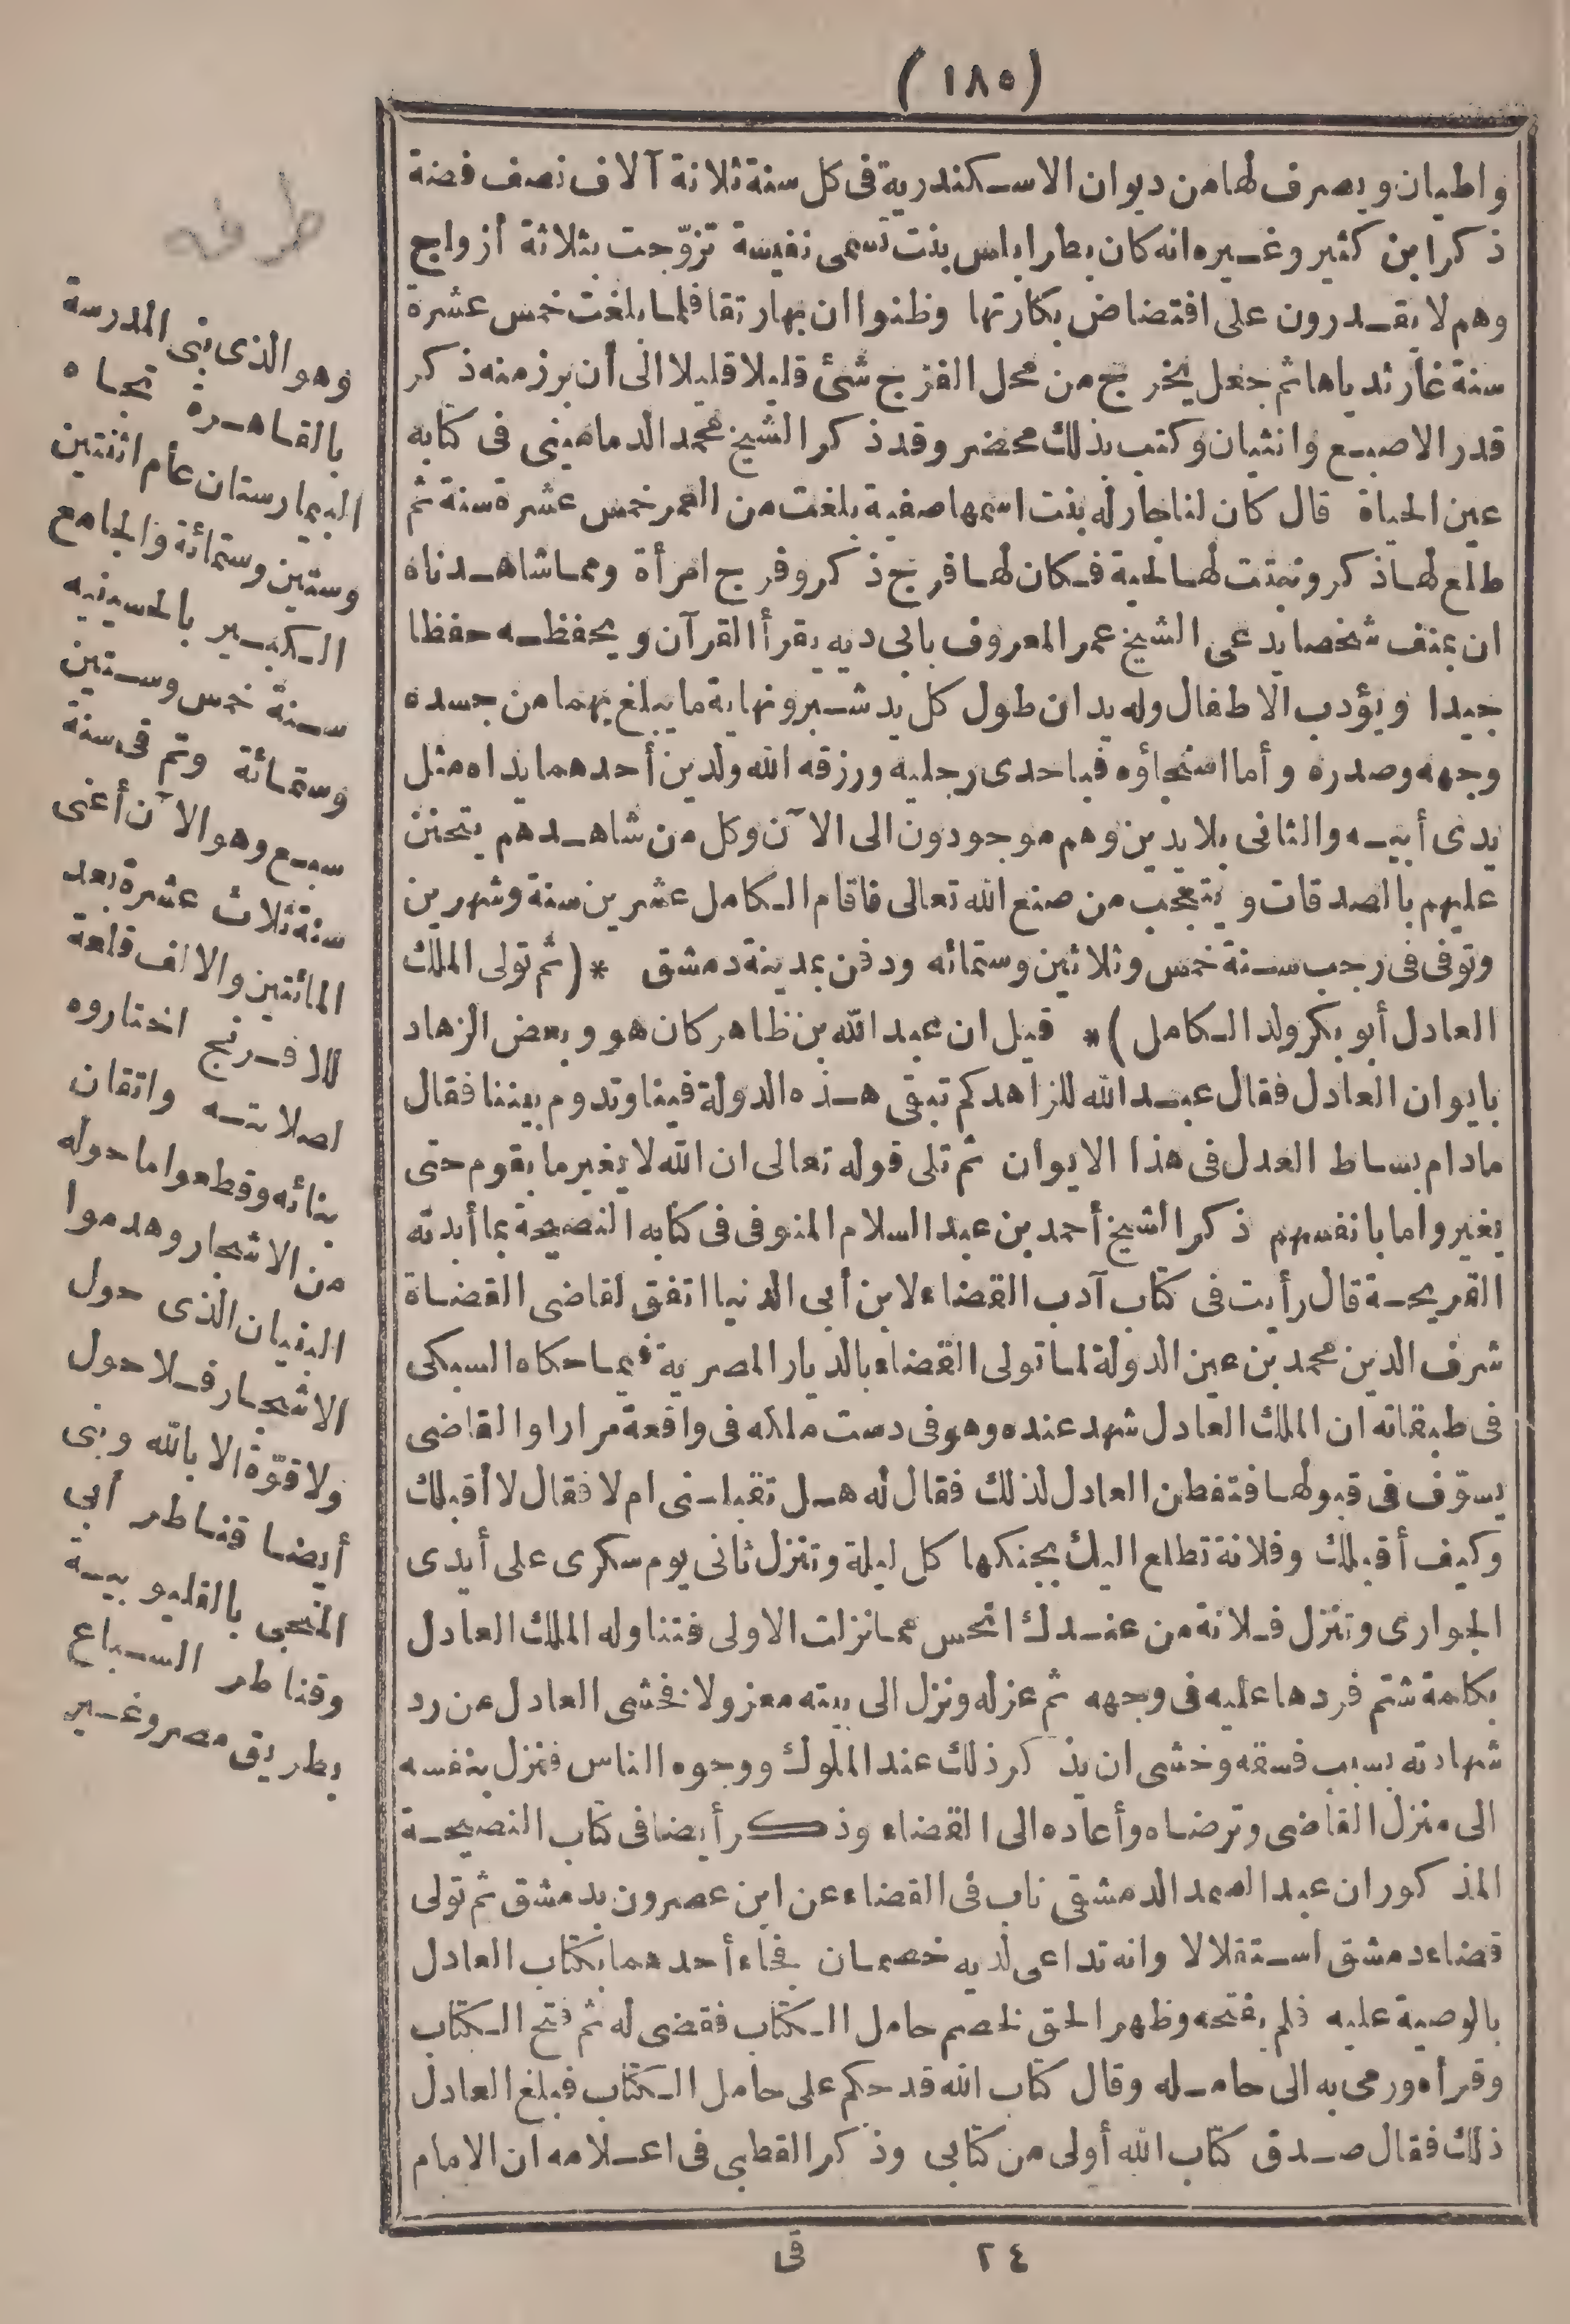 (١٨٥)
واطيان ويصرف لها من ديوان الاسكندرية فى كل سنة ثلاثة آلاف نصف فضة
ذكر ابن كثير وغيره انه كان بطرابلس بنت تسمى نفيسة تزوّجت بثلاثة أزواج
وهم لا يقدرون على افتضاض بكارتها وظنوا ان بهارتقا فلما بلغت خمس عشرة
سنة غار ثدياها ثم جعل يخرج من محل الفرج شئ قليلا قليلا الى أن برز منه ذكر
قدر الاصبع وانثيان وكتب بذلك محضر وقد ذكر الشيخ محمد الدمامينى فى كتابه
عين الحياة قال كان لنا جار له بنت اسمها صفية بلغت من العمر خمس عشرة سنة ثم
طلع لها ذكر ونبتت لها لحية فكان لها فرج ذكر وفرج امرأة ومما شاهدناه
ان بمنف شخصا يدعى الشيخ عمر المعروف بابى ديه يقرأ القرآن ويحفظه حفظا
جيدا ويؤدب الاطفال وله يدان طول كل يد شبر ونهاية ما يبلغ بهما من جسده
وجهه وصدره وأما استنجاؤه فباحدى رجليه ورزقه الله ولدين أحدهما يداه مثل
يدى أبيه والثانى بلا يدين وهم موجودون الى الآن وكل من شاهدهم يتحنن
عليهم بالصدقات ويتعجب من صنع الله تعالى فاقام الكامل عشرين سنة وشهرين
وتوفى فى رجب سنة خمس وثلاثين وستمائه ودفن بمدينة دمشق * (ثم تولى الملك
العادل أبو بكر ولد الكامل) * قيل ان عبد الله بن ظاهر كان هو وبعض الزهاد
بايوان العادل فقال عبد الله للزاهد كم تبقى هذه الدولة فينا وتدوم بيننا فقال
مادام بساط العدل فى هذا الايوان ثم تلى قوله تعالى ان الله لا يغير ما بقوم حتى
يغيروا ما بانفسهم ذكر الشيخ أحمد بن عبد السلام المنوفى فى كتابه النصيحة بما أبدته
القريحة قال رأيت فى كتاب آدب القضاء لابن أبى الدنيا اتفق لقاضى القضاة
شرف الدين محمد بن عين الدولة لما تولى القضاء بالديار المصرية فيما حكاه السبكى
فى طبقاته ان الملك العادل شهد عنده وهو فى دست ملكه فى واقعة مرارا والقاضى
يسوّف فى قبولها فتفطن العادل لذلك فقال له هل تقبلنى ام لا فقال لا أقبلك
وكيف أقبلك وفلانة تطلع اليك بجنكها كل ليلة وتنزل ثانى يوم سكرى على أيدى
الجوارى وتنزل فلانة من عندك انحس مما نزلت الاولى فتناوله الملك العادل
بكلمة شتم فردها عليه فى وجهه ثم عزله ونزل الى بيته معزولا فخشى العادل من رد
شهادته بسبب فسقه وخشى ان يذكر ذلك عند الملوك ووجوه الناس فنزل بنفسه
الى منزل القاضى وترضاه وأعاده الى القضاء وذكر أيضا فى كتاب النصيحة
المذكور ان عبد الصمد الدمشقى ناب فى القضاء عن ابن عصرون بدمشق ثم تولى
قضاء دمشق استقلالا وانه تداعى لديه خصمان فجاء أحدهما بكتاب العادل
بالوصية عليه فلم يفتحه وظهر الحق لخصم حامل الكتاب فقضى له ثم فتح الكتاب
وقرأه ورمى به الى حامله وقال كتاب الله قد حكم على حامل الكتاب فبلغ العادل
ذلك فقال صدق كتاب الله أولى من كتابى وذكر القطبى فى اعلامه ان الامام
٢٤ قى
وهو الذى بنى المدرسة
بالقاهرة تجاه
البيمارستان عام اثنتين
وستين وستمائة والجامع
الكبير بالحسينيه
سنة خمس وستين
وستمائة وتم فى سنة
سبع وهو الآن أعنى
سنة ثلاث عشرة بعد
المائتين والالف قلعة
للافرنج اختاروه
لصلابته واتقان
بنائه وقطعوا ما حوله
من الاشجار وهدموا
البنيان الذى حول
الاشجار فلا حول
ولا قوّة الا بالله وبنى
أيضا قناطر أبى
المنجى بالقليوبية
وقناطر السباع
بطريق مصر وغير